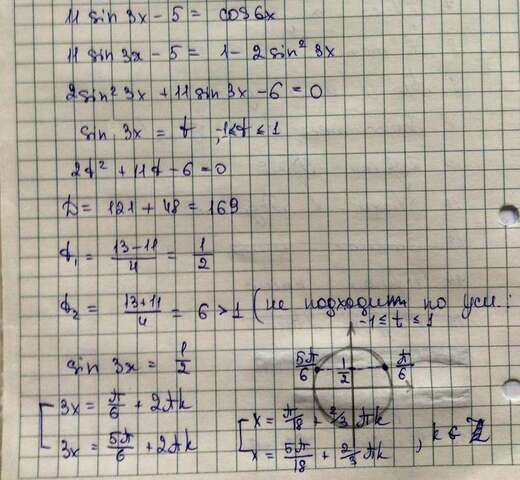 11 sin 3x - 5 = cos 6x
11 sin 3x - 5 = 1 - 2 sin² 3x
2 sin² 3x + 11 sin 3x - 6 = 0
sin 3x = t, -1 ≤ t ≤ 1
2t² + 11t - 6 = 0
D = 121 + 48 = 169
t₁ = (13-11)/4 = 1/2
t₂ = (13+11)/4 = 6 > 1 (не подходит по усл.:
-1 ≤ t ≤ 1
sin 3x = 1/2
5π/6 1/2 π/6
[ 3x = π/6 + 2πk
3x = 5π/6 + 2πk
[ x = π/18 + 2/3 πk
x = 5π/18 + 2/3 πk , k ∈ Z